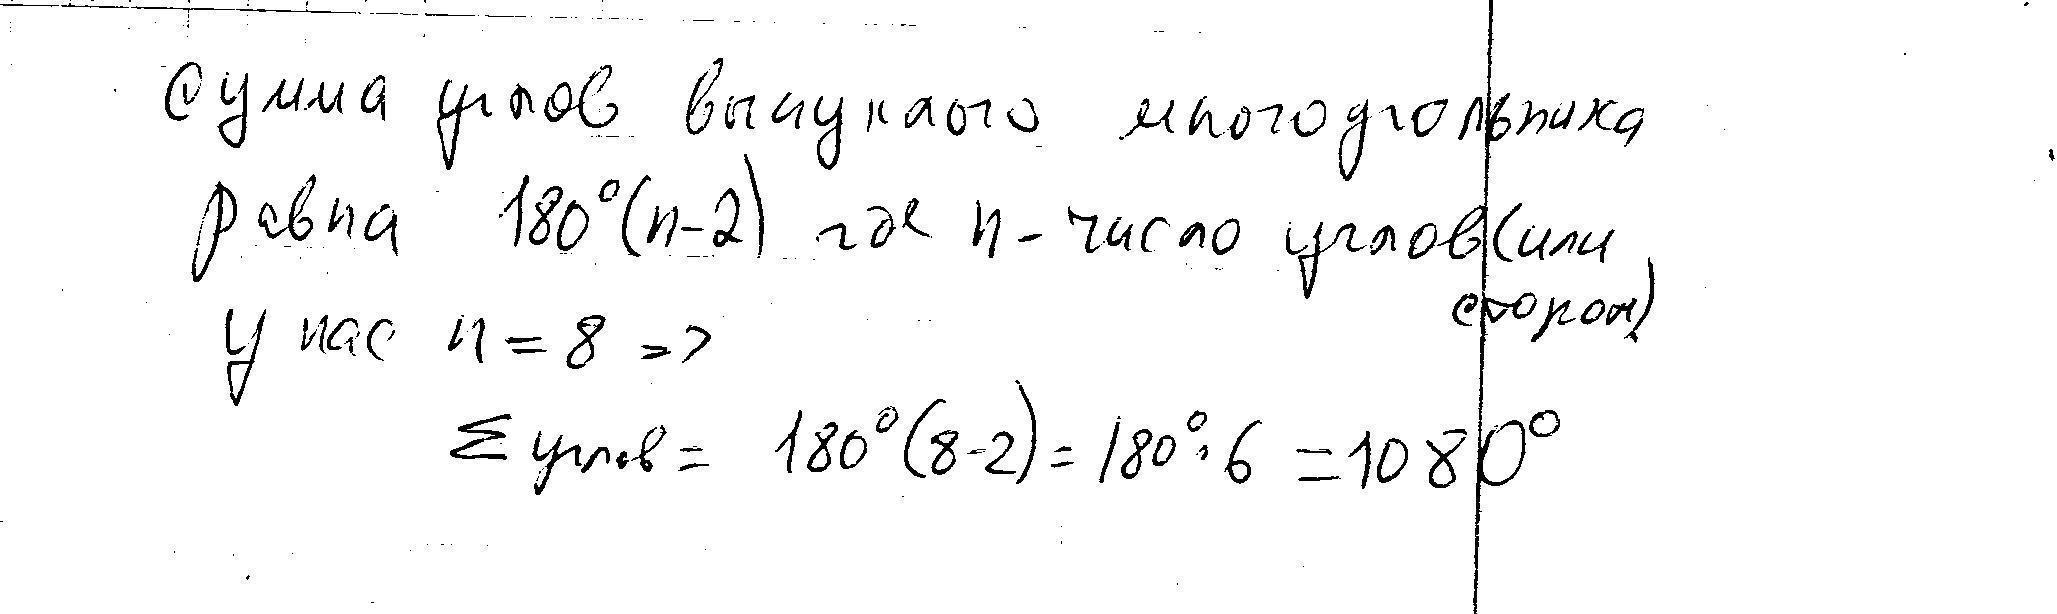 Сумма углов выпуклого многоугольника
равна 180°(n-2) где n - число углов (или
сторон)
У нас n = 8 =>
Σ углов = 180°(8-2) = 180°·6 = 1080°